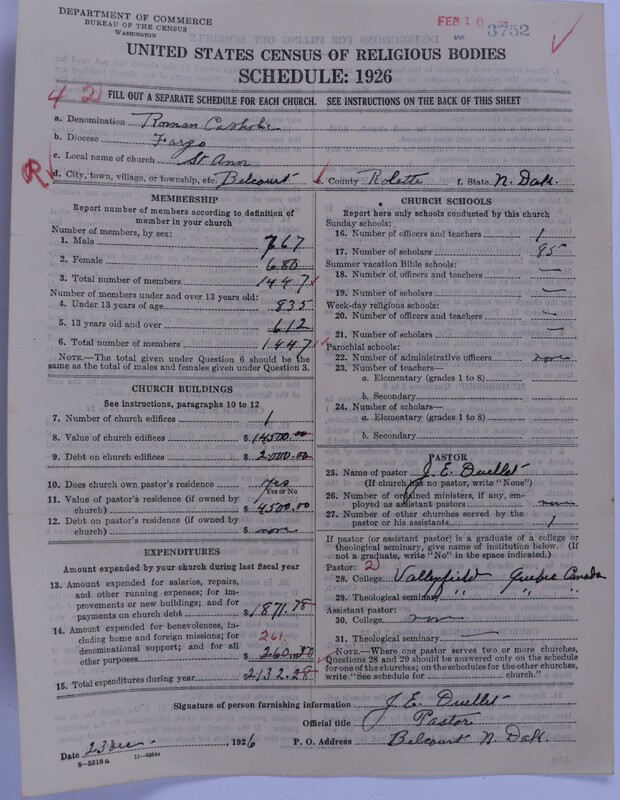 DEPARTMENT OF COMMERCE
BUREAU OF THE CENSUS
WASHINGTON
FEB 10
3752
UNITED STATES CENSUS OF RELIGIOUS BODIES
SCHEDULE: 1926
4 2) FILL OUT A SEPARATE SCHEDULE FOR EACH CHURCH. SEE INSTRUCTIONS ON THE BACK OF THIS SHEET
a. Denomination Roman Catholic
b. Diocese Fargo
c. Local name of church St Ann
R d. City, town, village, or township, etc. Belcourt e. County Rolette f. State N. Dak.
MEMBERSHIP
Report number of members according to definition of
member in your church
Number of members, by sex:
1. Male 767
2. Female 680
3. Total number of members 1447
Number of members under and over 13 years old:
4. Under 13 years of age 835
5. 13 years old and over 612
6. Total number of members 1447
NOTE.—The total given under Question 6 should be
same as the total of males and females given under Question 3.
CHURCH BUILDINGS
See instructions, paragraphs 10 to 12
7. Number of church edifices 1
8. Value of church edifices $ 14500.00
9. Debt on church edifices $ 2000.00
10. Does church own pastor's residence? yes
Yes or No
11. Value of pastor's residence (if owned by
church) $ 4500.00
12. Debt on pastor's residence (if owned by
church) $ none
EXPENDITURES
Amount expended by your church during last fiscal year
13. Amount expended for salaries, repairs,
and other running expenses; for im-
provements or new buildings; and for
payments on church debt $ 1871.78
14. Amount expended for benevolences, in-
cluding home and foreign missions; for
denominational support; and for all 261
other purposes $ 260.50
15. Total expenditures during year 2132.28
CHURCH SCHOOLS
Report here only schools conducted by this church
Sunday schools:
16. Number of officers and teachers 1
17. Number of scholars 85
Summer vacation Bible schools:
18. Number of officers and teachers —
19. Number of scholars —
Week-day religious schools:
20. Number of officers and teachers —
21. Number of scholars —
Parochial schools:
22. Number of administrative officers none
23. Number of teachers—
a. Elementary (grades 1 to 8)
b. Secondary
24. Number of scholars—
a. Elementary (grades 1 to 8)
b. Secondary
PASTOR
25. Name of pastor J. E. Duellet
(If church has no pastor, write "None")
26. Number of ordained ministers, if any, em-
ployed as assistant pastors none
27. Number of other churches served by the
pastor or his assistants 1
If pastor (or assistant pastor) is a graduate of a college or
theological seminary, give name of institution below. (If
not a graduate, write "No" in the space indicated.)
Pastor: 2)
28. College Valleyfield Quebec Canada
29. Theological seminary " " " "
Assistant pastor:
30. College none
31. Theological seminary —
NOTE.—Where one pastor serves two or more churches,
Questions 28 and 29 should be answered only on the schedule
for one of the churches; on the schedules for the other churches,
write "See schedule for church."
Signature of person furnishing information J. E. Duellet
Official title Pastor
Date 23 Dec 1926 P. O. Address Belcourt N. Dak.
8-5518a